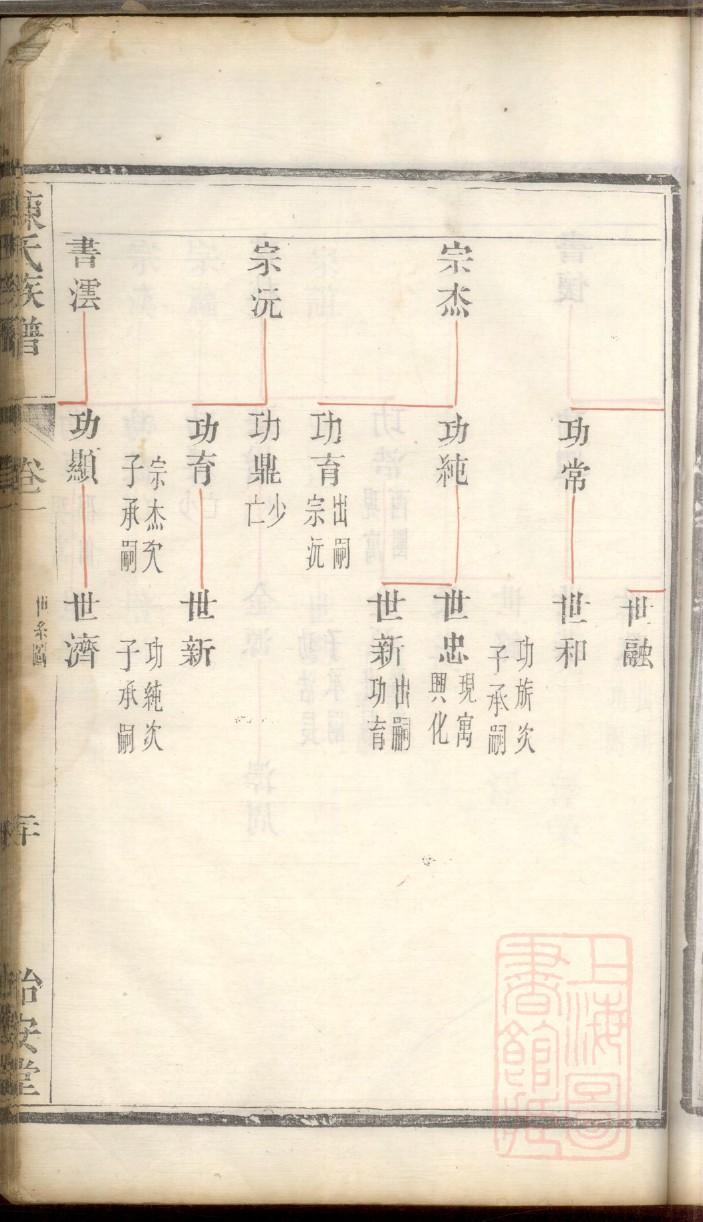 宗杰
宗沅
書澐
功常
功純
功育
出嗣
宗沅
功鼎
少
亡
功育
宗杰次
子承嗣
功顯
世融
世和
功族次
子承嗣
世忠
現寓
興化
世新
出嗣
功育
世新
功純次
子承嗣
世濟
陳氏族譜
卷一
世系圖
治安堂
上海圖
書館藏